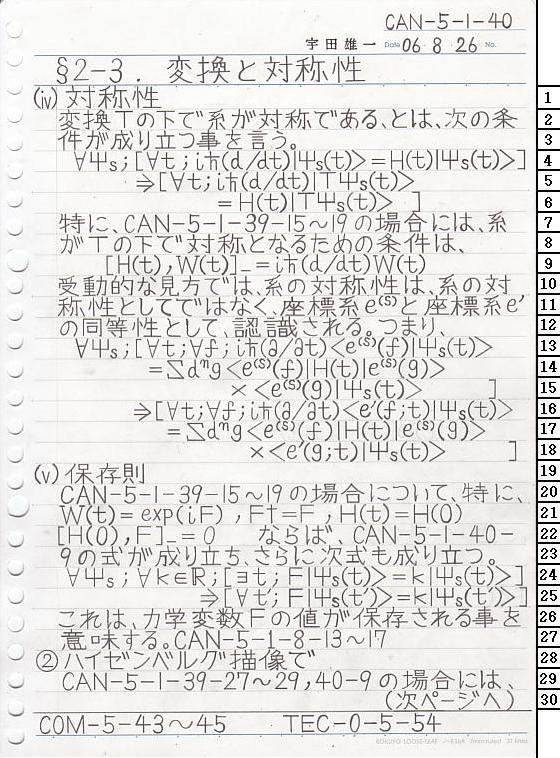 CAN-5-1-40
宇田雄一 Date 06・8・26 No.
§2-3. 変換と対称性
(iv) 対称性 1
変換Tの下で系が対称である、とは、次の条 2
件が成り立つ事を言う。 3
∀Ψs;[∀t;iħ(d/dt)|Ψs(t)>=H(t)|Ψs(t)>] 4
⇒[∀t;iħ(d/dt)|TΨs(t)> 5
=H(t)|TΨs(t)> ] 6
特に、CAN-5-1-39-15〜19の場合には、系 7
がTの下で対称となるための条件は、 8
[H(t),W(t)]_=iħ(d/dt)W(t) 9
受動的な見方では、系の対称性は、系の対 10
称性としてではなく、座標系e⁽ˢ⁾と座標系e' 11
の同等性として、認識される。つまり、 12
∀Ψs;[∀t;∀f;iħ(∂/∂t)<e⁽ˢ⁾(f)|Ψs(t)> 13
=∑dⁿg<e⁽ˢ⁾(f)|H(t)|e⁽ˢ⁾(g)> 14
×<e⁽ˢ⁾(g)|Ψs(t)> ] 15
⇒[∀t;∀f;iħ(∂/∂t)<e'(f;t)|Ψs(t)> 16
=∑dⁿg<e⁽ˢ⁾(f)|H(t)|e⁽ˢ⁾(g)> 17
×<e'(g;t)|Ψs(t)> ] 18
(v) 保存則 19
CAN-5-1-39-15〜19の場合について、特に、 20
W(t)=exp(iF), F†=F, H(t)=H(0) 21
[H(0),F]_=0 ならば、CAN-5-1-40- 22
9の式が成り立ち、さらに次式も成り立つ。 23
∀Ψs;∀k∈ℝ;[∃t;F|Ψs(t)>=k|Ψs(t)>] 24
⇒[∀t';F|Ψs(t')>=k|Ψs(t')>] 25
これは、力学変数Fの値が保存される事を 26
意味する。CAN-5-1-8-13〜17 27
②ハイゼンベルグ描像で 28
CAN-5-1-39-27〜29,40-9の場合には、 29
(次ページへ) 30
COM-5-43〜45 TEC-0-5-54
KOKUYO LOOSE-LEAF ノ-836A 7mm ruled 31 lines